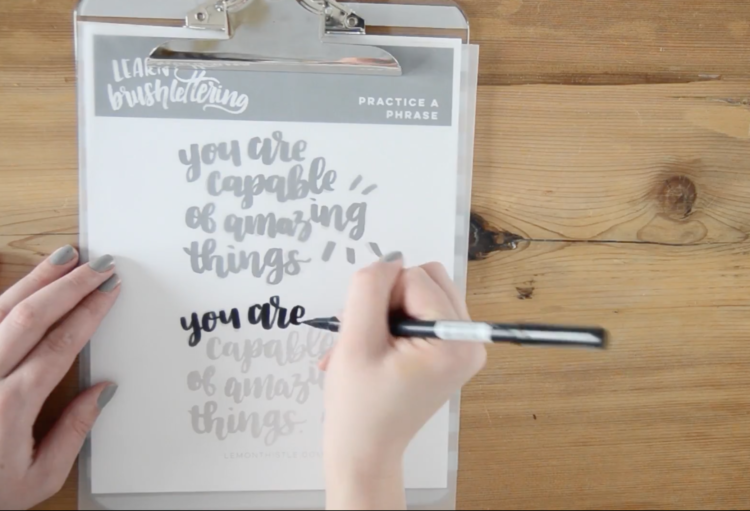 LEARN
brush lettering
PRACTICE A
PHRASE
you are
capable
of amazing
things
you are
capable
of amazing
things.